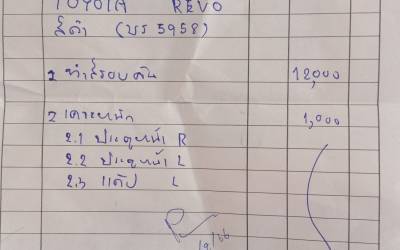 TOYOTA REVO
สีดำ (บร 5958)
1 ทำสีรอบคัน 12,000
2 เคาะหนัก 1,000
2.1 ประตูหน้า R
2.2 ประตูหน้า L
2.3 แค๊ป L